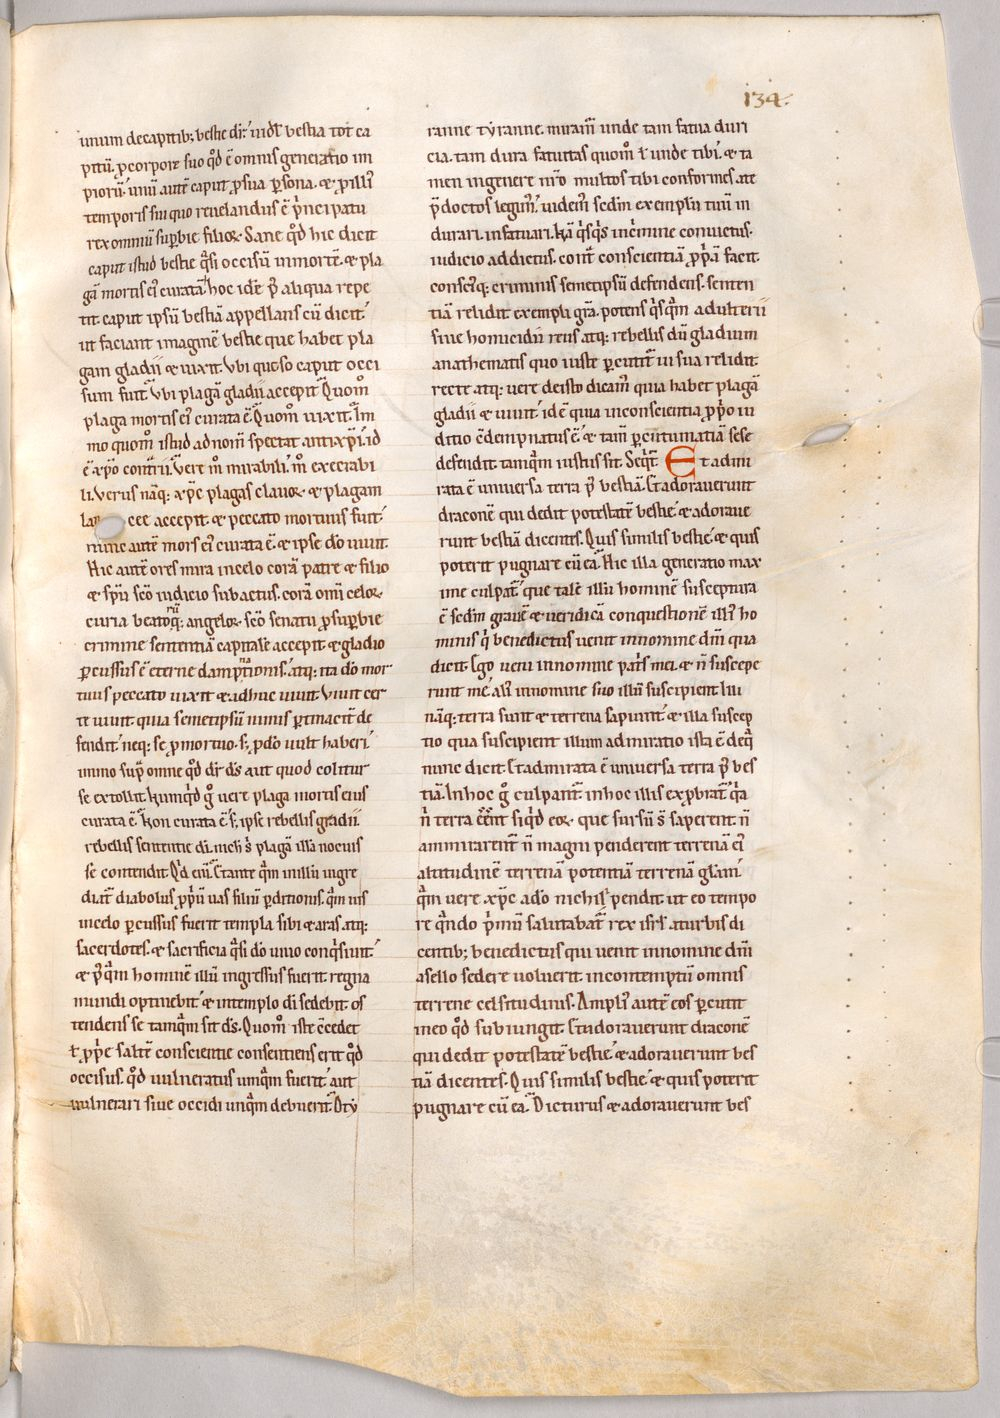 134.
unum decapitib; bestie dr̄. uidꝉ bestia tot ca
pitū. ꝓcorpore suo qđ ē omnis generatio im
piorū. unū autē caput ꝓsua ꝑsona. & ꝓilliꝰ
temporis sui quo reuelandus ē p̄ncipatu
rex omniū suꝑbie filioꝝ. Sane qđ hic dicit
caput istud bestie q̄si occisū inmortē. & pla
gā mortis ei curatā. hoc idē p̄ aliqua repe
tit. caput ipsū bestiā appellans cū dicit.
ut faciant imaginē bestie que habet pla
gam gladii & uixit. Vbi queso caput occi
sum fuit. Vbi plagā gladii accepit. Quom̄
plaga mortis ei curata ē. Quom̄ uixit. Im
mo quom̄ istud ad nom̄ spectat antixp̄i. id
ē xp̄o cont̄rii. Vere m̄ mirabili. m̄ execrabi
li. Verus nāq; xp̄c plagas clauoꝝ & plagam
lan cee accepit. & peccato mortuus fuit.
nunc autē mors ei curata ē. & ipse dō uiuit.
Hic autē ores mira incelo corā patre & filio
& sp̄u sc̄o iudicio subactus. corā omi celoꝝ
curia beatoꝝq; angeloꝝ. sc̄o senatu ꝓsuꝑbie
crimine sententiā capitalē accepit. & gladio
ꝑcussus ē eterne dampnationis. atq; ita dō mor
tuus peccato uixit & adhuc uiuit. Viuit cer
te uiuit quia semetipsū nimis ꝑtinacit̄ de
fendit. neq; se ꝓmortuo. s; ꝓdō uult haberi.
immo suꝑ omne qđ dr̄ ds̄ aut quod colitur
se extollit. Nunqd̄ g̊ uere plaga mortis eius
curata ē. Non curata ē. s; ipse rebellis gladii.
rebellis sententie di. mchꝉ s̄ plagā illā nocuis
se contendit. Qd̄ eni. Etante q̄m inillū ingre
diat̄ diabolus ꝓpriū uas filiū ꝑditionis. q̄m uis
incelo ꝑcussus fuerit templa sibi & aras. atq;
sacerdotes. & sacrificia q̄si dō uiuo conq̄siuit.
& p̄q̄m hominē illū ingressus fuerit. regna
mundi optinebit. & intemplo di sedebit. os
tendens se tamq̄m sit ds̄. Quom̄ iste ēcedet
ꝉ ꝓp̄e saltē conscientie consentiens erit qđ
occisus. qđ uulneratus umq̄m fuerit. aut
uulnerari siue occidi unq̄m debuerit. O ty
ranne tyranne. miram̄ unde tam fatua duri
cia. tam dura fatuitas quom̄ ꝉ unde tibi. & ta
men ingenere nr̄o multos tibi conformes. ate
p̄doctos legim̄. uidem̄ scđm exemplū tuū in
durari. infatuari. Nā q̄sq̄s incrimine conuictus.
iudicio addictus. cont̄ conscientiā ꝓpriā facit.
consciq; criminis semetipsū defendens. senten
tiā relidit. exempli gr̄a. potens q̄sq̄m adulterii
siue homicidii reus atq; rebellis dū gladium
anathematis quo iuste ꝑcutit̄ iu sua relidit.
recte atq; uere deisto dicam̄ quia habet plagā
gladii & uiuit. id ē quia inconscientia ꝓprio iu
ditio ēdempnatus ē. & tam̄ ꝑcōtumatiā sese
defendit. tamq̄m iustus sit. Seqt̄. Et admi
rata ē uniuersa terra p̄ bestiā. Et adorauerunt
draconē qui dedit potestatē bestie. & adoraue
runt bestiā dicentes. Quis similis bestie. & quis
poterit pugnare cū ea. Hic illa generatio max
ime culpat̄. que talē illū hominē susceptura
ē scđm grauē & ueridicā conquestionē illiꝰ ho
minis q̄ benedictus uenit innomine dn̄i. qua
dicit. Ego ueni innomine patris mei. & n̄ suscepe
runt me. aliꝰ innomine suo illū suscipient. hii
nāq; terra sunt & terrena sapiunt. & illa suscep
tio qua suscipient illum admiratio ista ē deq̄
nunc dicit. Et admirata ē uniuersa terra p̄ bes
tiā. Inhoc g̊ culpant̄. inhoc illis exprobrat̄. q̄a
n̄ terra ēēnt siqđ eoꝝ. que sursū s̄ saperent. n̄
ammirarent̄. n̄ magni penderent terrenā ei
altitudinē terrenā potentiā terrenā gl̄am.
q̄m uere xp̄c adō nichil ꝑpendit. ut eo tempo
re q̄ndo p̄mū salutabat̄ rex isrl̄ aturbis di
centib; benedictus qui uenit innomine dn̄i
asello sedere uoluerit. incontemptū omnis
terrene celsitudinis. Ampliꝰ autē eos ꝑcutit
ineo qđ subiungit. Et adorauerunt draconē
qui dedit potestatē bestie. & adorauerunt bes
tiā dicentes. Quis similis bestie. & quis poterit
pugnare cū ea. Dicturus & adorauerunt bes